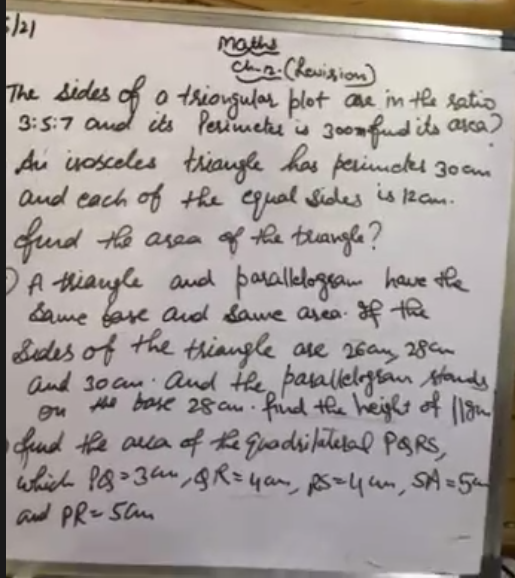 5/21
Maths
Ch. 12. (Revision)
The sides of a triangular plot are in the ratio
3:5:7 and its Perimeter is 300m find its area?
An isosceles triangle has perimeter 30 cm
and each of the equal sides is 12 cm.
find the area of the triangle?
A triangle and parallelogram have the
same base and same area. If the
Sides of the triangle are 26cm, 28cm
and 30 cm. And the parallelogram stands
on the base 28 cm. find the height of ||gm
find the area of the quadrilateral PQRS,
which PQ = 3cm, QR = 4cm, RS = 4cm, SA = 5cm
and PR = 5cm